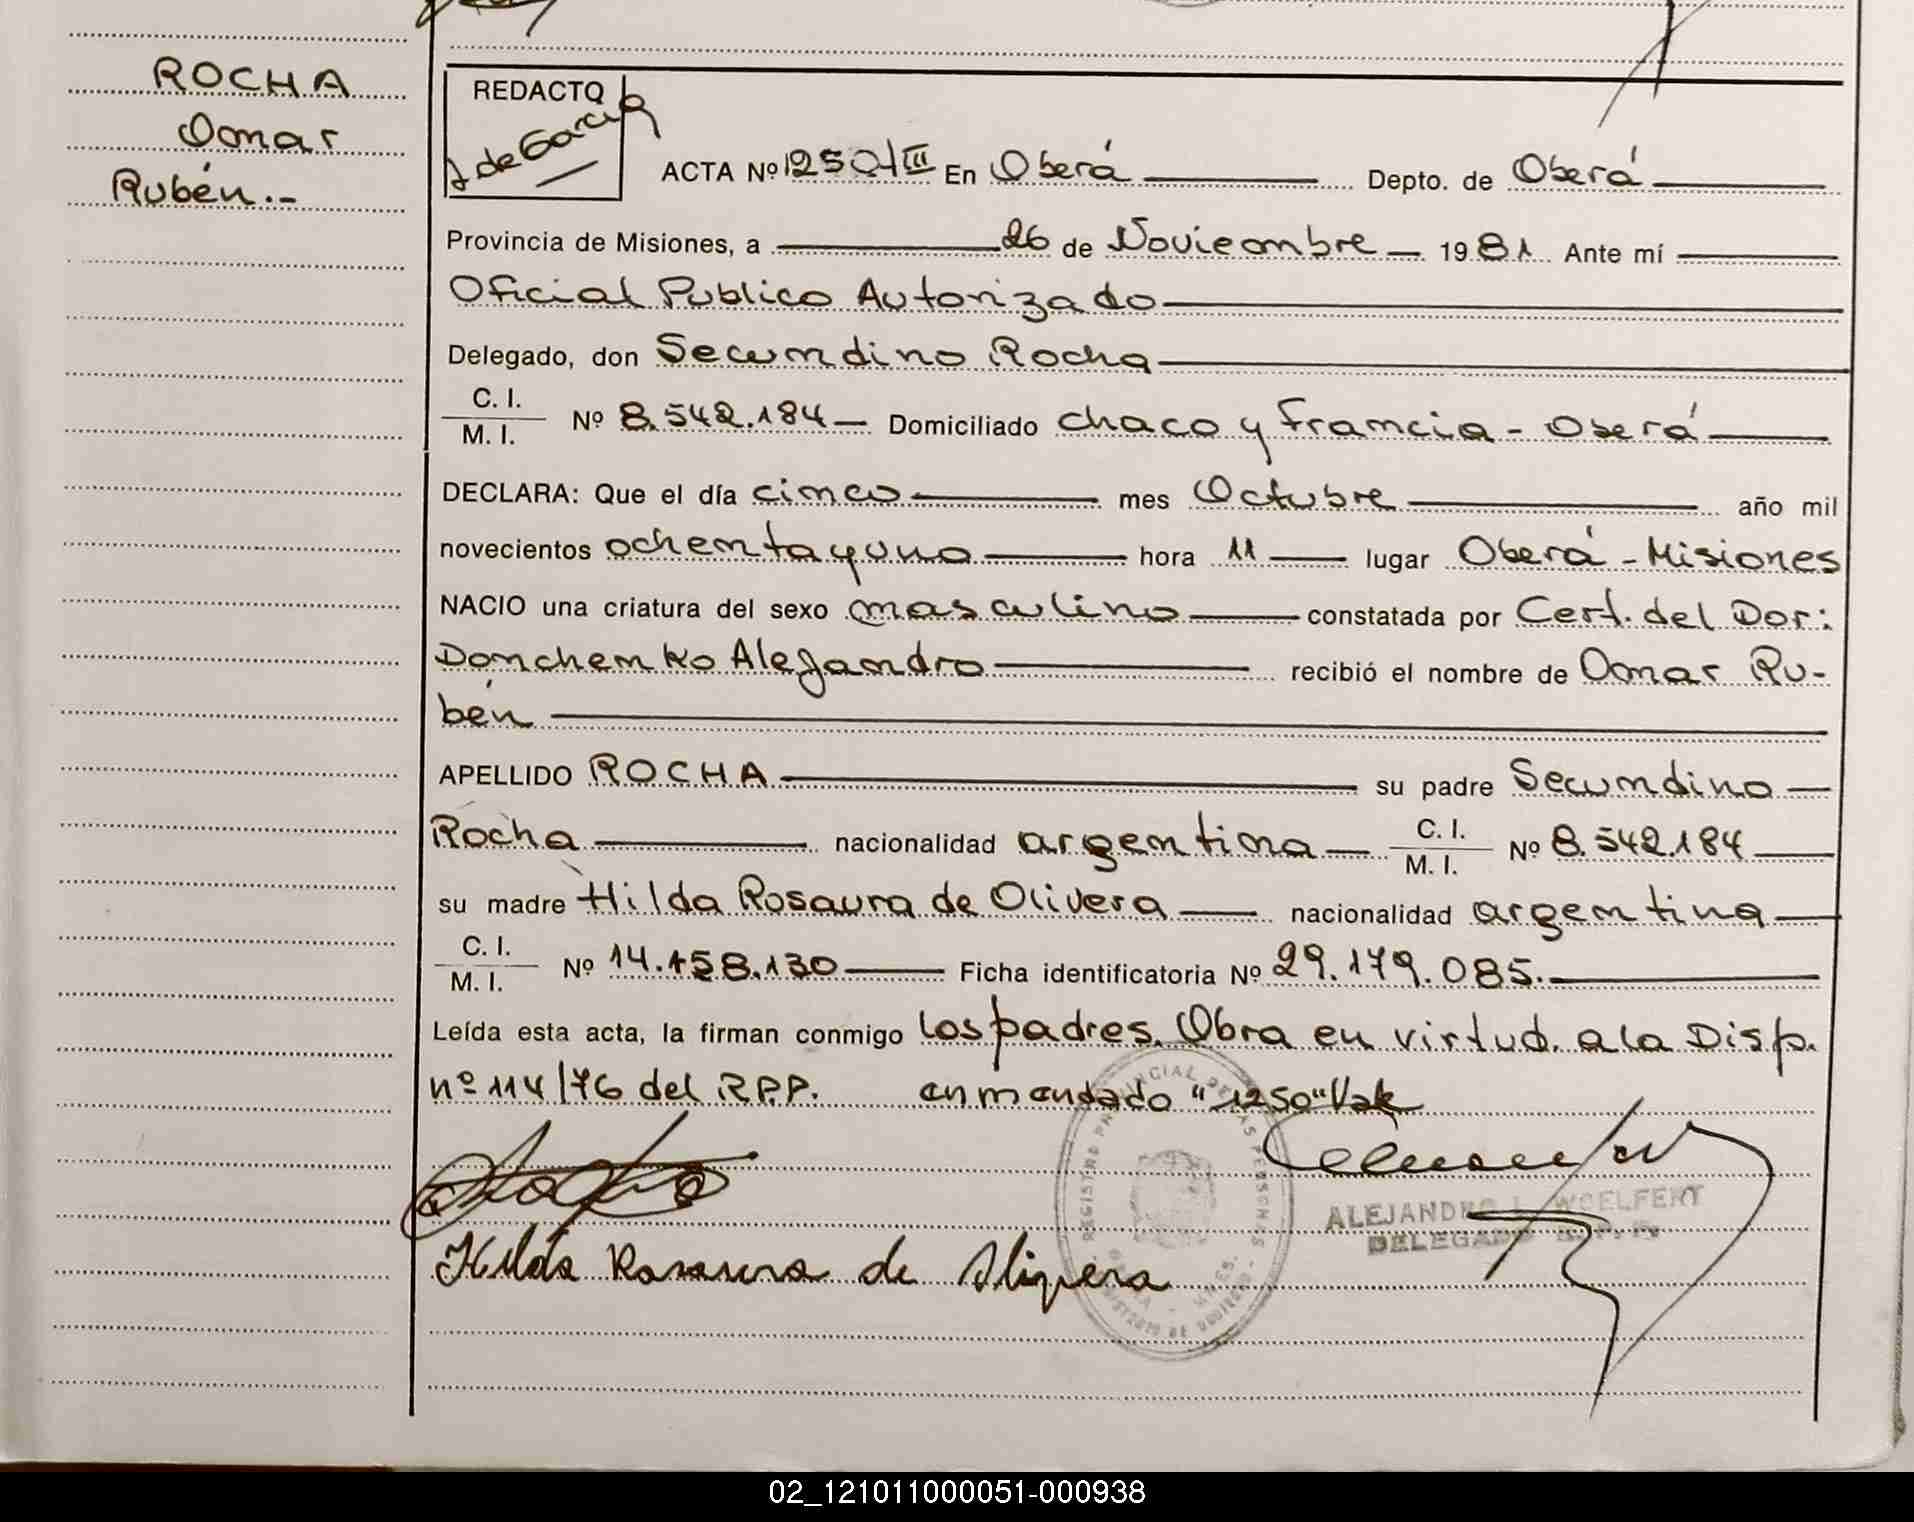 ROCHA
Omar
Rubén.-
REDACTO
J de Garcia
ACTA Nº 1250/III En Oberá Depto. de Oberá
Provincia de Misiones, a 26 de Noviembre 1981 Ante mí
Oficial Publico Autorizado
Delegado, don Secundino Rocha
C. I.
M. I. Nº 8.542.184 Domiciliado Chaco y Francia - Oberá
DECLARA: Que el día cinco mes Octubre año mil
novecientos ochenta y uno hora 11 lugar Oberá - Misiones
NACIO una criatura del sexo masculino constatada por Cert. del Dor:
Donchenko Alejandro recibió el nombre de Omar Ru-
bén
APELLIDO ROCHA su padre Secundino
Rocha nacionalidad argentina C. I. M. I. Nº 8.542.184
su madre Hilda Rosaura de Olivera nacionalidad argentina
C. I.
M. I. Nº 14.158.130 Ficha identificatoria Nº 29.179.085.
Leída esta acta, la firman conmigo los padres. Obra en virtud. a la Disp.
nº 114/76 del R.P.P. enmendado "1250" Vale
REGISTRO PROVINCIAL DE LAS PERSONAS
ALEJANDRO L. WOELFERT
DELEGADO R. P. P.
Hilda Rosaura de Olivera
02_121011000051-000938